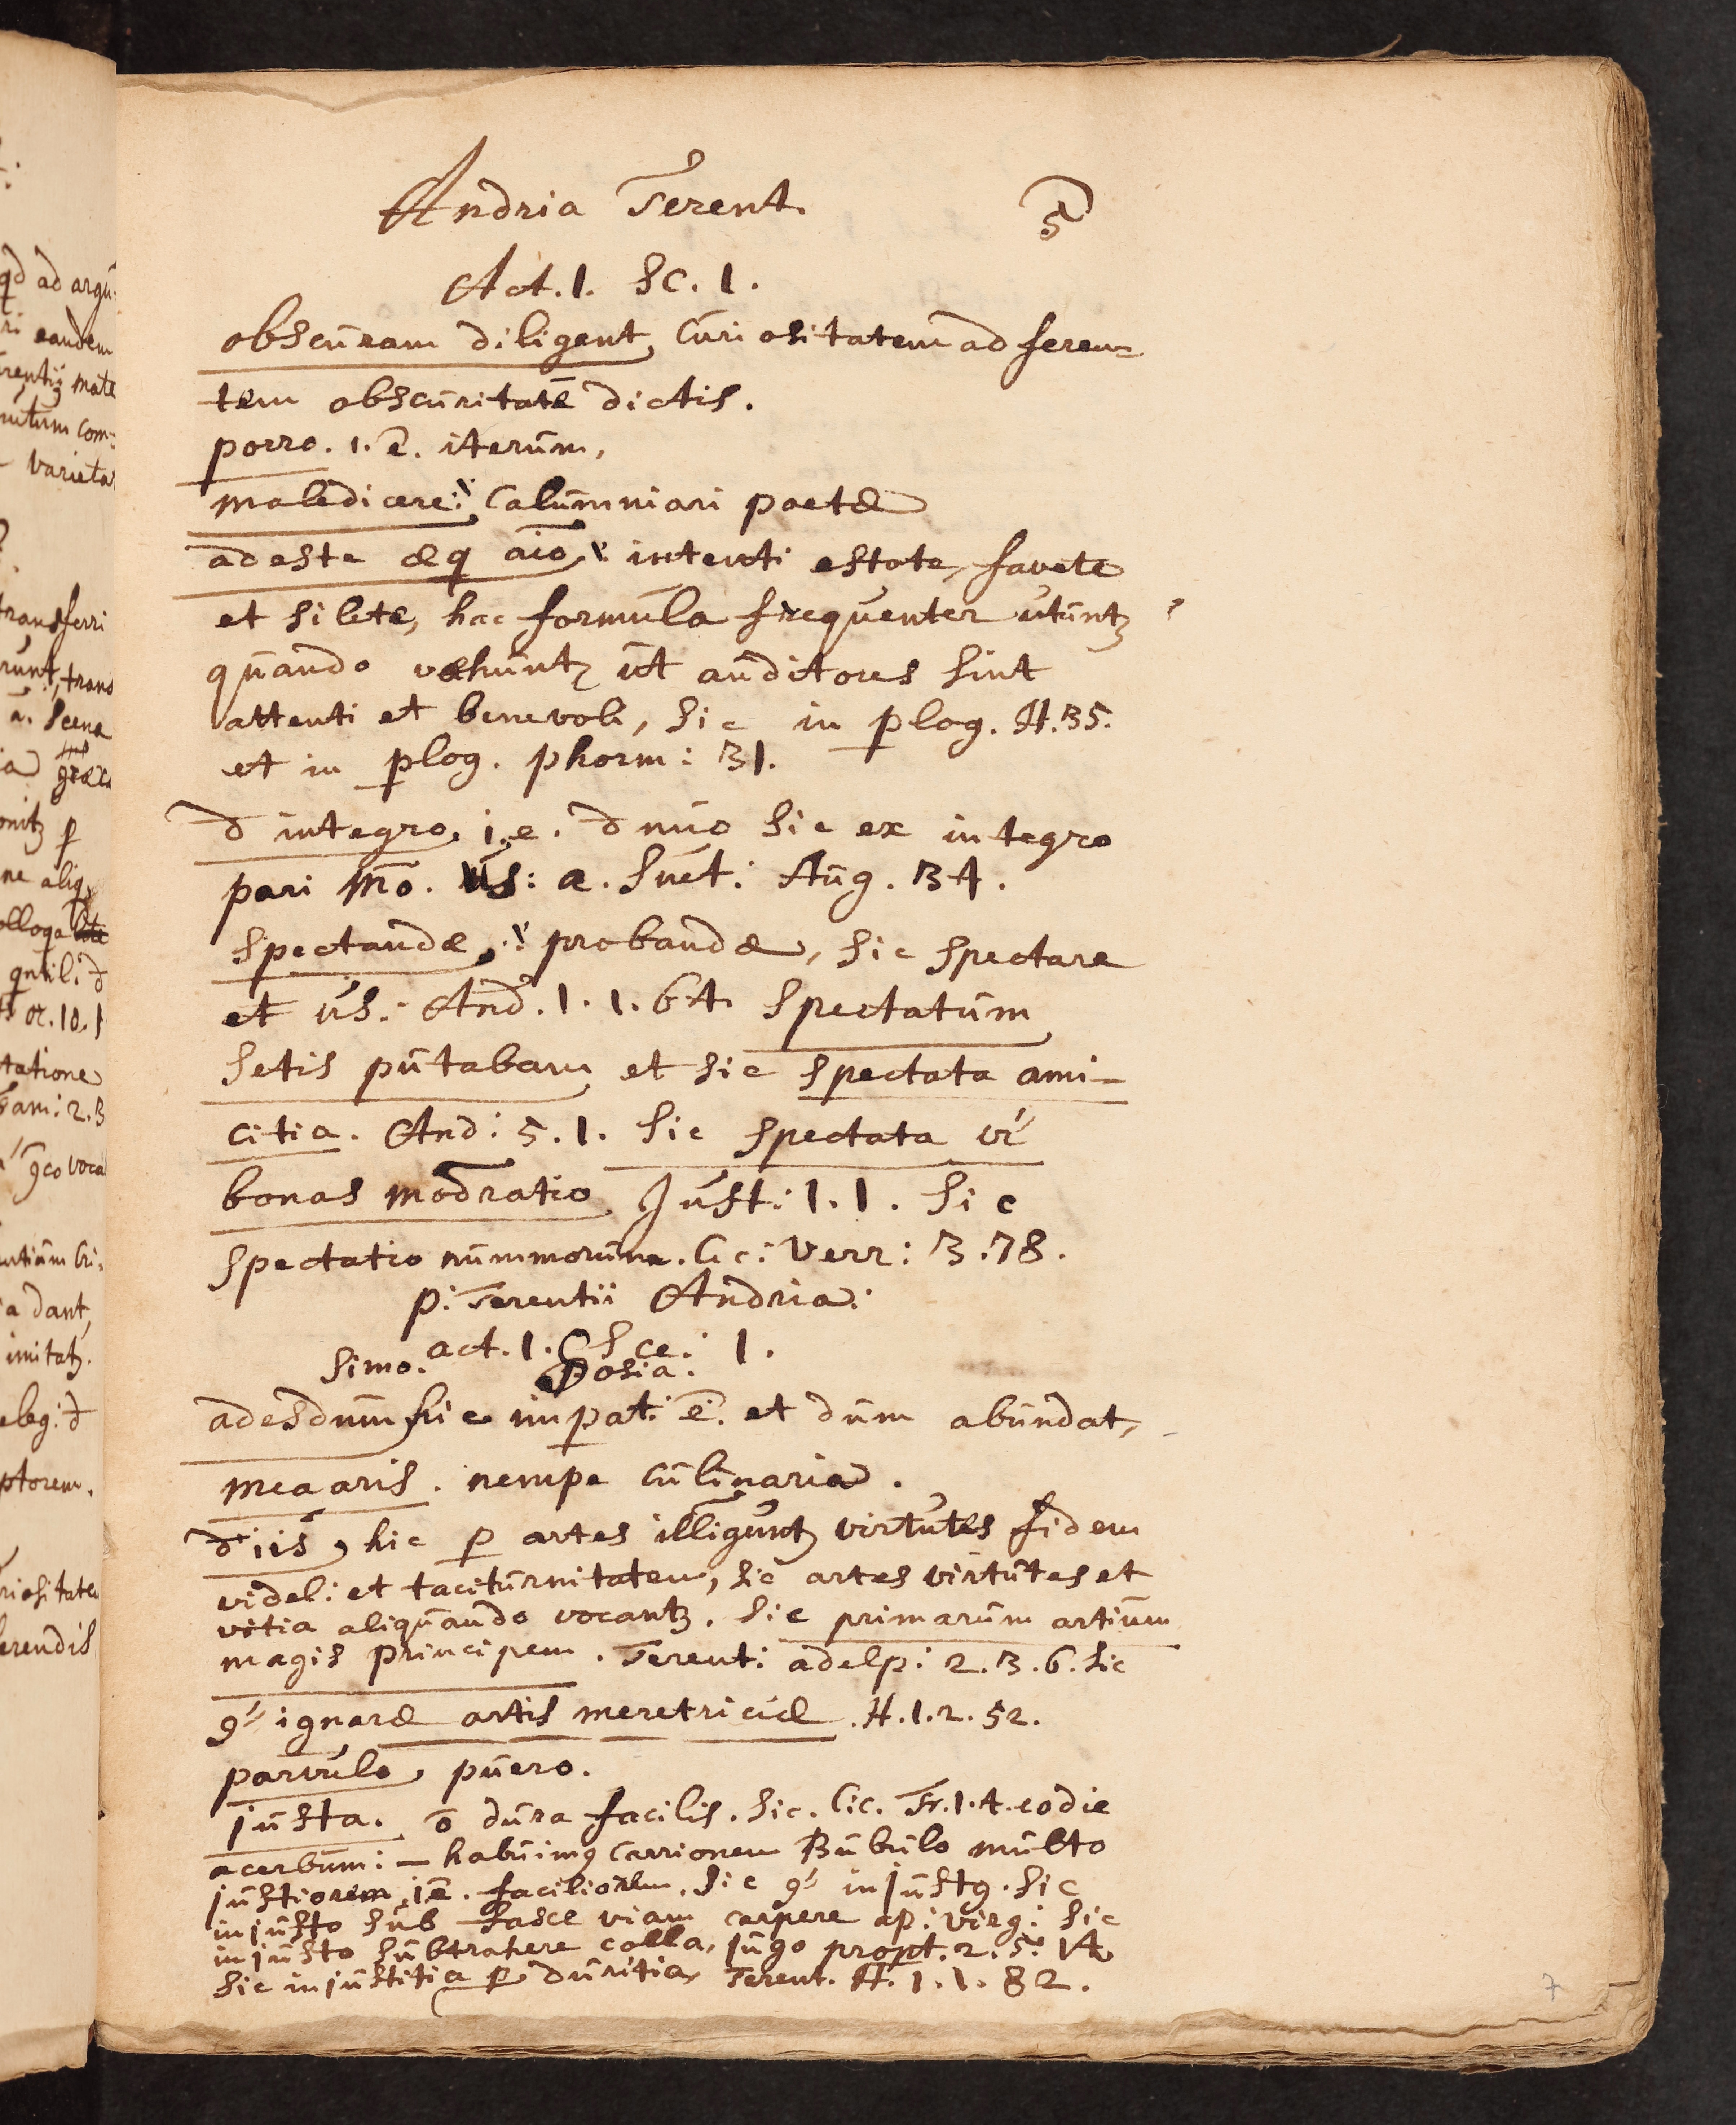 Andria Terent. 5
Act. 1. Sc. 1.
obscuram diligent, Curiositatem adferen=
tem obscuritatē dictis.
porro. i. ē. iterum,
maledicere: Calumniari poetæ
adeste æq aīo, intenti estote, favete
et silete, hac formula frequenter utuntʒ
quando vehuntʒ ut auditores sint
attenti et benevoli, sic in plog. H. 35.
et in plog. phorm: 31.
d integro, i. e. d nuo sic ex integro
pari mō. us: a. Suet: Aug. 34.
Spectandæ, probandæ, sic spectare
et us: And. 1. 1. 64. Spectatum
Setis putabam et sic spectata ami-
citia. And: 5. 1. sic spectata vr
bonas modratio Just: 1. 1. sic
Spectatio nummorum. Cic: Verr: 3. 78.
p: Terentii Andria:
act. 1. Sce: 1.
Simo. Sosia.
adesdum hic impat: ē. et dum abundat,
mea aris. nempe culinaria.
d iis, hic p artes illiguntʒ virtutes fidem
videl: et taciturnitatem, sic artes virtutes et
vitia aliquando vocantʒ. sic primarum artium
magis principem. Terent: adelp: 2. 3. 6. sic
9" ignaræ artis meretriciæ. H. 1. 2. 52.
parvulo, puero.
justa. ō dura facilis. sic. Cic. Fr. 1. 4. eodie
acerbum: — habuim9 carrionem Bubulo multo
justiorem, i ē. faciliorem. sic 9" injust9. sic
injusto sub fasce viam carpere ap: virg: sic
injusto subtrahere colla, jugo propt. 2. 5. 14
sic injustitia p duritia, Terent. H. 1. 1. 82.
7